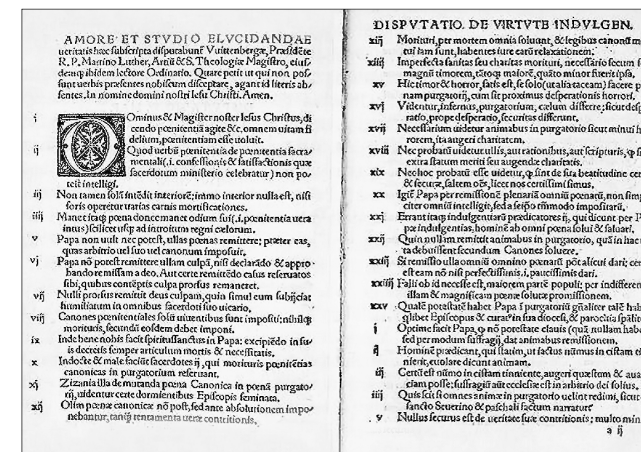 AMORE ET STVDIO ELVCIDANDAE
ueritatis hæc subscripta disputabunť Vuittenbergæ, Præsidẽte
R. P. Martino Luther, Artiũ & S. Theologiæ Magistro, eius-
demq; ibidem lectore Ordinario. Quare petit ut qui non pos-
sunt uerbis præsentes nobiscum disceptare, agant id literis ab-
sentes. In nomine domini nostri Iesu Christi. Amen.
i DOminus & Magister noster Iesus Christus, di
cendo pœnitẽtiã agite &c. omnem uitam fi
delium, pœnitentiam esse uoluit.
ij Quod uerbũ pœnitentia de pœnitentia sacra-
mentali(.i. confessionis & satisfactionis quæ
sacerdotum ministerio celebratur) non po-
test intelligi.
iij Non tamen solã intẽdit interiorẽ: immo interior nulla est, nisi
foris operetur uarias carnis mortificationes.
iiij Manet itaq; pœna donec manet odium sui(.i. pœnitentia uera
intus) scilicet usq; ad introitum regni cælorum.
v Papa non uult nec potest, ullas pœnas remittere: præter eas,
quas arbitrio uel suo uel canonum imposuit.
vj Papa nõ potest remittere ullam culpã, nisi declarãdo & appro-
bando remissam a deo. Aut certe remittẽdo casus reseruatos
sibi, quibus contẽptis culpa prorsus remaneret.
vij Nulli prorsus remittit deus culpam, quin simul eum subijciat
humiliatum in omnibus sacerdoti suo uicario.
viij Canones pœnitentiales solũ uiuentibus sunt impositi: nihilq;
morituris, secundũ eosdem debet imponi.
ix Inde bene nobis facit spiritussanctus in Papa: excipiẽdo in su-
is decretis semper articulum mortis & necessitatis.
x Indocte & male faciũt sacerdotes ij, qui morituris pœnitẽtias
canonicas in purgatorium reseruant.
xj Zizania illa de mutanda pœna Canonica in pœnã purgato-
rij, uidentur certe dormientibus Episcopis seminata.
xij Olim pœnæ canonicæ nõ post, sed ante absolutionem impo-
nebantur, tanq̃ tentamenta ueræ contritionis.
DISPVTATIO. DE VIRTVTE INDVLGEN.
xiij Morituri, per mortem omnia soluunt, & legibus canonũ m
tui iam sunt, habentes iure earũ relaxationem.
xiiij Imperfecta sanitas seu charitas morituri, necessario secum f
magnũ timorem, tãtoq; maiorẽ, quãto minor fuerit ipsa.
xv Hic timor & horror, satis est, se solo(ut alia taceam) facere p
nam purgatorij, cum sit proximus desperationis horrori.
xvj Videntur, infernus, purgatorium, cælum differre: sicut desp
ratio, prope desperatio, securitas differunt.
xvij Necessarium uidetur animabus in purgatorio sicut minui h
rorem, ita augeri charitatem.
xviij Nec probatũ uidetur ullis, aut rationibus, aut scripturis, q̃ si
extra statum meriti seu augendæ charitatis.
xix Nec hoc probatũ esse uidetur, q̃ sint de sua beatitudine cer
& securæ, saltem oẽs, licet nos certissimi simus.
xx Igiť Papa per remissionẽ plenariã omniũ pœnarũ, non simp
citer omniũ intelligit, sed a seipso tĩmodo impositarũ.
xxj Errant itaq; indulgentiarũ prædicatores ij, qui dicunt per P
pæ indulgentias, hominẽ ab omni pœna solui & saluari.
xxij Quin nullam remittit animabus in purgatorio, quã in hac
ta debuissent secundum Canones soluere.
xxiij Si remissio ulla omniũ omnino pœnarũ põt alicui dari; cer
est eam nõ nisi perfectissimis .i. paucissimis dari.
xxiiij Falli ob id necesse est, maiorem partẽ populi: per indifferen
illam & magnificam pœnæ solutæ promissionem.
xxv Qualẽ potestatẽ habet Papa ĩ purgatoriũ gñaliter talẽ hab
q̃libet Episcopus & curat9 in sua diocesi, & parochia spãlit
j Optime facit Papa, q̃ nõ potestate clauis (quã nullam habe
sed per modum suffragij, dat animabus remissionem.
ij Hominẽ prædicant, qui statim, ut iactus nũmus in cistam ti
nierit, euolare dicunt animam.
iij Certũ est nũmo in cistam tinniente, augeri quæstum & aua
ciam posse: suffragiũ aũt ecclesiæ est in arbitrio dei solius.
iiij Quis scit si omnes animæ in purgatorio uelint redimi, sicut
sancto Seuerino & paschali factum narratur
v Nullus securus est de ueritate suæ contritionis; multo min
a ij